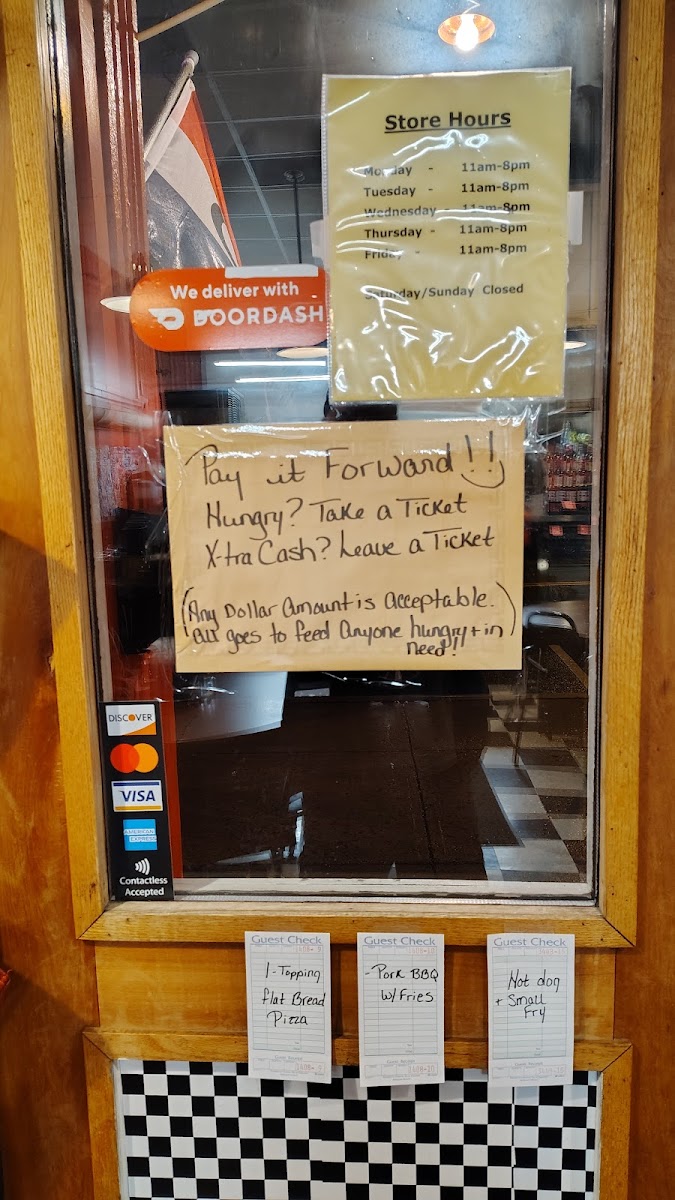 Store Hours
Monday - 11am-8pm
Tuesday - 11am-8pm
Wednesday - 11am-8pm
Thursday - 11am-8pm
Friday - 11am-8pm
Saturday/Sunday Closed
We deliver with
DOORDASH
Pay it Forward!!
Hungry? Take a Ticket
X-tra Cash? Leave a Ticket
(Any Dollar amount is acceptable.
all goes to feed anyone hungry + in
need!!)
DISCOVER
VISA
AMERICAN
EXPRESS
Contactless
Accepted
Guest Check
1-Topping
flat Bread
Pizza
Guest Check
-Pork BBQ
w/ Fries
Guest Check
Hot dog
+ Small
Fry